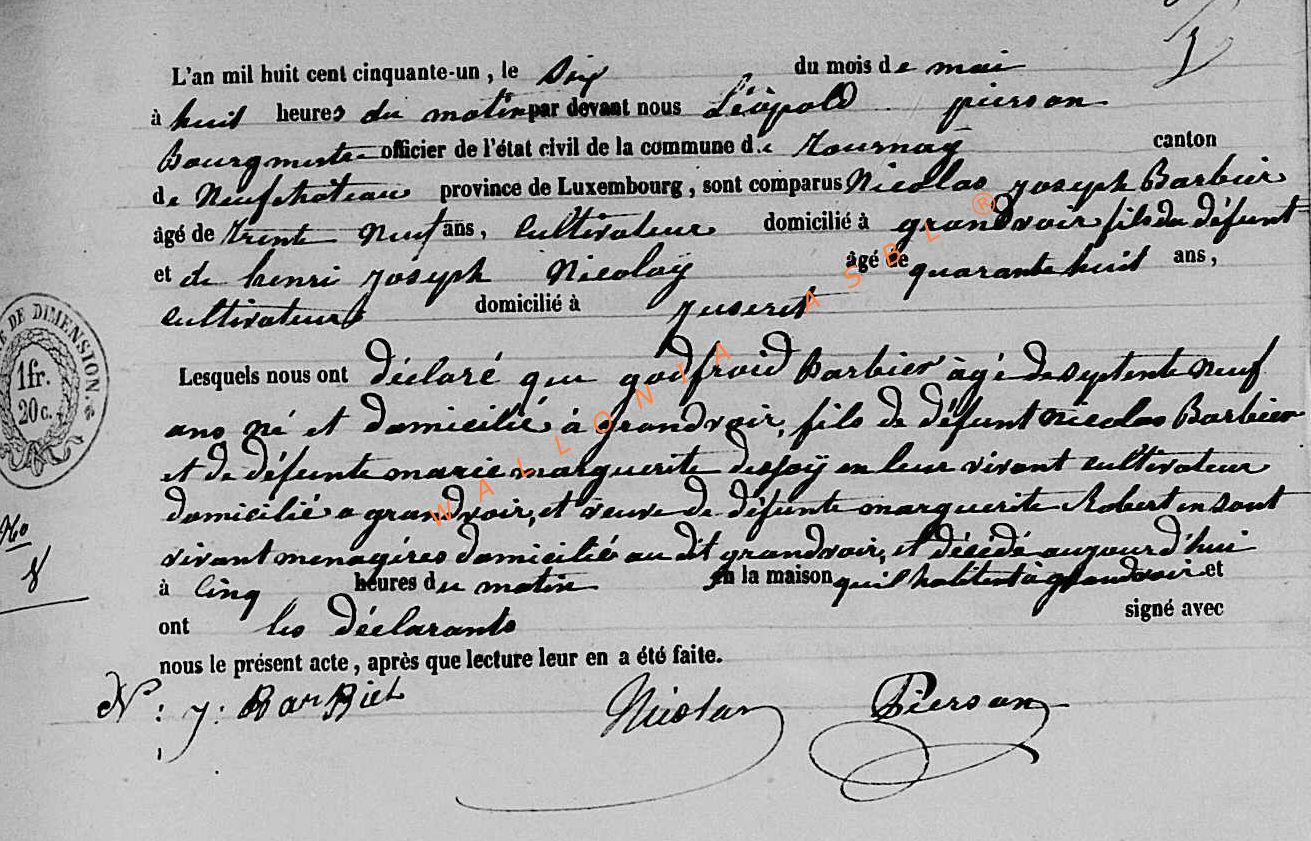 L'an mil huit cent cinquante-un, le six du mois de mai
à huit heures du matin par devant nous Léopold pierson
Bourgmestre officier de l'état civil de la commune de Tournay canton
de Neufchateau province de Luxembourg, sont comparus Nicolas joseph Barbier
âgé de trente Neuf ans, cultivateur domicilié à grandvoir fils du défunt
et de henri joseph Nicolaÿ âgé de quarante huit ans,
cultivateurs domicilié à juseret
Lesquels nous ont déclaré que godfroid Barbier âgé de septente Neuf
ans né et domicilié à grandvoir, fils de défunt Nicolas Barbier
et de défunte marie marguerite dessoÿ en leur vivant cultivateur
domicilié a grandvoir, et veuve de défunte marguerite Robert en sont
vivant menagères domiciliés au dit grandvoir, et décédé aujourd'hui
à cinq heures du matin en la maison qu'il habitent à grandvoir et
ont les déclarants signé avec
nous le présent acte, après que lecture leur en a été faite.
N: j: BarBier Nicolay Pierson
E DE DIMENSION.
1 fr.
20 c.
No
8
WALLONIA ASBL ®